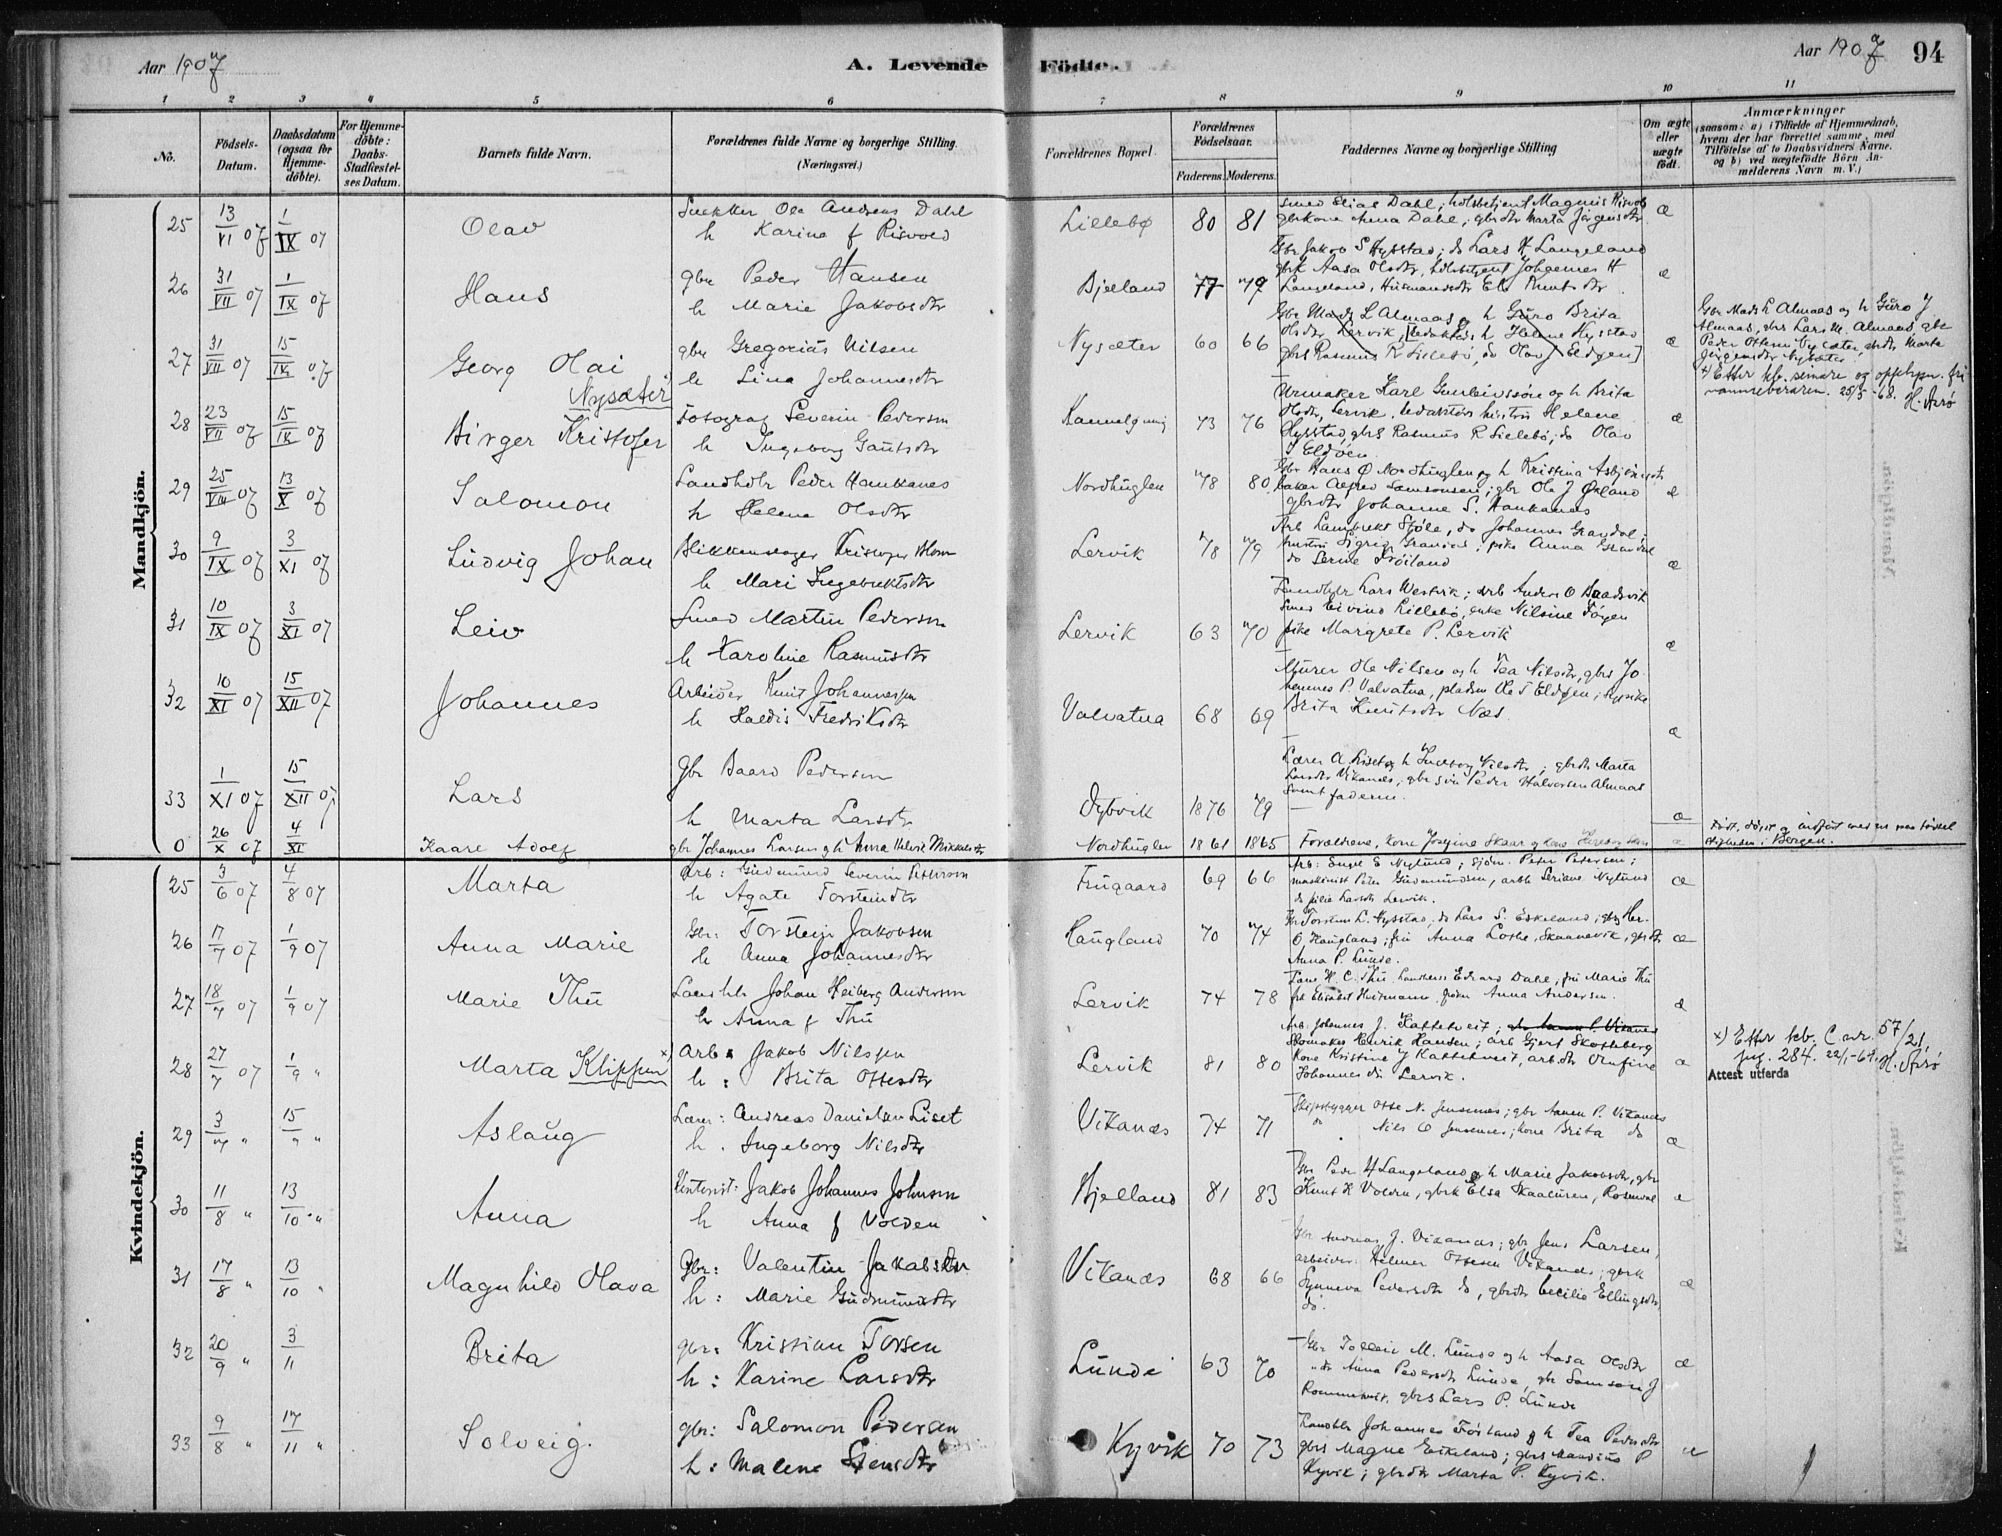 Aar 1907
A. Levende Födte.
Aar 1907 94
1 2 3 4 5 6 7 8 9 10 11
No.
Födsels-Datum.
Daabsdatum (ogsaa for Hjemme-döbte).
For Hjemme-döbte: Daabs-Stadfæstel-ses Datum.
Barnets fulde Navn.
Forældrenes fulde Navne og borgerlige Stilling.
(Næringsvei.)
Forældrenes Bopæl.
Forældrenes Födselsaar.
Faderens. Moderens.
Faddernes Navne og borgerlige Stilling
Om ægte eller uægte født.
Anmærkninger
(saasom: a) i Tilfælde af Hjemmedaab, hvem der har forrettet samme, med Tilföielse af to Daabsvidners Navne. og b) ved uægtefödte Börn An-melderens Navn m. V.)
Mandkjön.
25 13/VI 07 1/IX 07 Olav
Snekker Ole Andreas Dahl
h Karine f Risvold
Lillebø 80 81
Smed Elias Dahl, Magnus Risvold
gbrkone Anna Dahl, gbrdtr Marta Jörgensdtr
æ
26 31/VII 07 1/IX 07 Hans
gbr Peder Hansen
h Marie Jakobsdtr
Bjelland 77 79
Gbr Jakob S Hysstad; do Lars H Langeland
gbrk Aasa Olsdtr, Johannes H
Langeland, Husmandsdtr Knutsdtr
æ
27 31/VII 07 15/IX 07 Georg Olai
Nysæter
gbr Gregorius Nilsen
h Lina Johannesdtr
Nysæter 60 66
Gbr Mads L Almaas og h Guro Brita
Olsdtr Lervik, h Helene Hysstad
gbrs Rasmus R Lillebö, do Olav J Eldøen]
æ
Gbr Mads L Almaas og h Guro J
Almaas, gbrs Lars M. Almaas, gbr
Peder Ottesen Nysæter, gbrdtr Marta
Jörgensdtr Nysæter
x) Efter kb. senere og opplysn. fri
navneberaren. 25/5-68. H. Aarø
28 23/VII 07 15/IX 07 Birger Kristofer
Fotograf Severin Pedersen
h Ingeborg Gautsdtr
73 76
Urmaker Karl Gunbjørnssön og h Brita
Olsdtr, Lervik, redaktör Helene
Hysstad gbrs Rasmus R Lillebö, do Olav
J Eldøen
æ
29 25/VIII 07 13/X 07 Salomon
Landhdlr Peder Haukanes
h Helene Olsdtr
Nordhuglen 78 80
Gbr Hans Ø Nordhuglen og h Kristina Asbjörnsdtr
baker Alfred Samsonsen; gbr Ole J Øyland
gbrdtr Johanne S. Haukanes
æ
30 9/IX 07 3/XI 07 Ludvig Johan
Blikkenslager Kristofer Blom
h Mari Ingebriktsdtr
Lervik 78 79
Arb Lambrekt Stöle, do Johannes Grandal;
hustru Sigrid Grandal; pike Anna Grandal
do Serine Tröiland
æ
31 10/IX 07 3/XI 07 Leiv
Smed Martin Pedersen
h Karoline Rasmusdtr
Lervik 63 70
Landhdlr Lars Westvik; arb Anders O Haadsvik
Smed Eivind Lillebö, enke Nilsine Töyen
pike Margrete P. Lervik
æ
32 10/XI 07 15/XII 07 Johannes
Arbeider Knut Johannessen
h Haldis Fredriksdtr
Valvatna 68 69
Murer Ole Nilsen og h Tea Nilsdtr, gbrs Jo
hannes P. Valvatna, pladsm Ole T Eldøen;
Brita Knutsdtr Næs.
æ
33 1/XI 07 15/XII 07 Lars
Gbr Baard Pedersen
h Marta Larsdtr
Dybvik 1876 79
Lærer A Liset og h Ingeborg Nilsdtr; gbrdtr Marta
Larsdtr Vikanes; gbrsön Peder Halvorsen Almaas
samt faderen.
æ
0 26/X 07 4/XI Kaare Adolf
gbr Johannes Larsen og h Anna Helene Mikkelsdtr
Nordhuglen 1861 1865
Forældrene, kone Josefine Skaar og kone
æ
Født, döpt og indført
i Bergen.
Kvindekjön.
25 3/6 07 4/8 07 Marta
arb: Gudmund Severin Pettersen
h Agate Torsteindtr
Frugaard 69 66
Arb: Engel E Nylund; sjöm. Peter Petersen;
maskinist Peter Gudmundsen, arbk Seriane Nylund
do Julie Larsdtr Lervik.
æ
26 17/7 07 1/9 07 Anna Marie
Gbr: Torstein Jakobsen
h Anna Johannesdtr
Haugland 70 74
Torstein L. Hysstad, do Lars S. Eskeland; gbrs Her.
O. Haugland; frk Anna Lothe, Skaanevik, gbrdtr
Anna P. Lunde.
æ
27 18/7 07 1/9 07 Marie Thu
Landhdl Johan Heiberg Andersen
h Anna f Thu
Lervik 74 78
H. C. Thu, Landhdls Edvard Dahl, fru Marie Thu
frk Elisabet Anna Andersen.
æ
28 27/7 07 1/9 " Marta Klippen x)
Arb: Jakob Nilssen
h: Brita Ottesdtr
Lervik 81 80
Arb: Johannes J. Kattetveit;
Skomaker Henrik Hansen; arb Gjert Skotteberg
Kone Kristine J Kattetveit, arb.dtr Olufine
Johannesdtr Lervik.
æ
x) Efter kb. C nr. 57/21,
pag. 284. 22/1-64. H. Aarø
Attest utferda
29 3/7 " 15/9 " Aslaug
Lærer: Andreas Danielsen Liset
h. Ingeborg Nilsdtr
Vikanes 74 71
Skipsbygger Otte N. Jensenes; gbr Aamu P. Vikanes
do Nils O Jensenes; kone Brita do
æ
30 11/8 " 13/10 " Anna
Kontorist: Jakob Johannes Johnsen
h Anna f Volden
Bjelland 81 83
Gbr Peder H Langeland og h Marie Jakobsdtr, gbr
Knut K Volden, gbrk Elsa Rosendal
æ
31 17/8 " 13/10 " Magnhild Olava
Gbr: Valentin Jakobsen
h: Marie Gudmunsdtr
Vikanes 68 66
Gbr J. Vikanes; gbr Jens Larsen,
arbeider Helmer Ottesen Vikanes; gbrk
Synneva Pedersdtr do, gbrdtr Cecilie Ellingsdtr
do.
æ
32 20/9 " 3/11 Brita
gbr: Kristian Torsen
h: Karine Larsdtr
Lunde 63 70
Gbr Tollei M. Lunde og h Aasa Olsdtr
do Anna Pedersdtr Lunde, gbr Samson J
Rommetveit, gbrs Lars P. Lunde
æ
33 9/8 " 17/11 " Solveig.
gbr: Salomon Pedersen
h: Malene
Kyvik 70 73
Landhdlr JohannesFörland og h Tea Pedersdtr
gbrs Magne Eikeland; gbrs Mandius P
Kyvik; gbrdtr Marta P. Kyvik.
æ